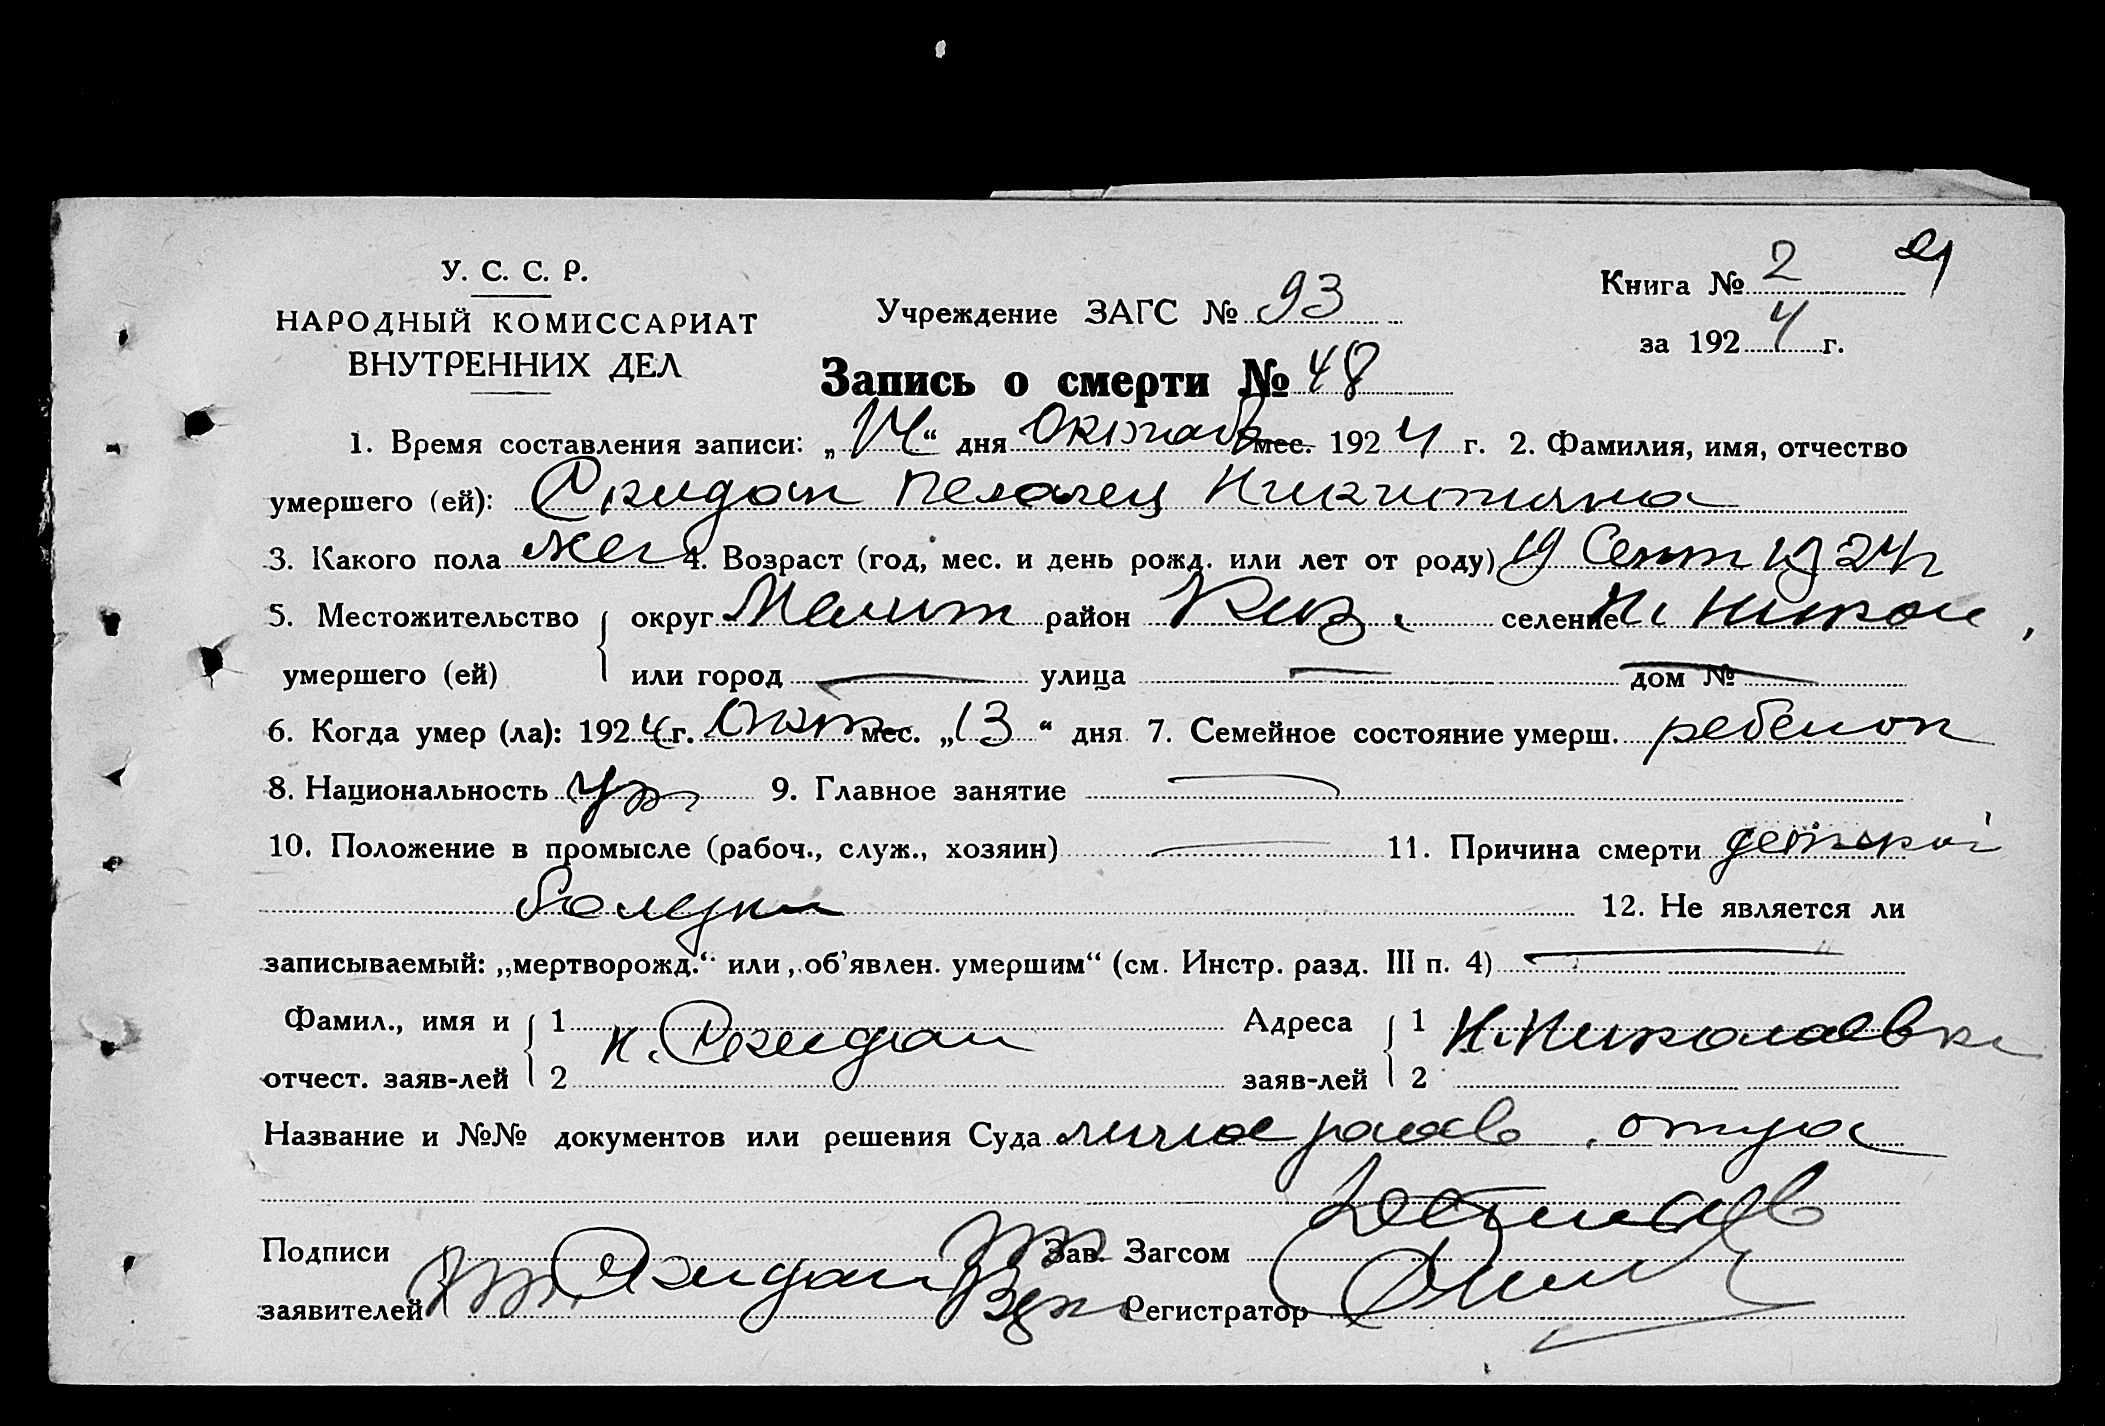 У. С. С. Р.
НАРОДНЫЙ КОМИССАРИАТ
ВНУТРЕННИХ ДЕЛ
Учреждение ЗАГС № 93
Книга № 2
за 1924 г.
Запись о смерти № 48
1. Время составления записи: „14“ дня Октяб мес. 1924 г. 2. Фамилия, имя, отчество
умершего (ей): Скидан Пелагец Никитична
3. Какого пола жен 4. Возраст (год, мес. и день рожд. или лет от роду) 19 Сент 1924 г
5. Местожительство округ Мелит район Киз. селение Н. Никол
умершего (ей) или город — улица — дом № —
6. Когда умер (ла): 1924 г. Окт мес. „13“ дня 7. Семейное состояние умерш. ребенок
8. Национальность укр 9. Главное занятие —
10. Положение в промысле (рабоч., служ., хозяин) — 11. Причина смерти детской
болезни 12. Не является ли
записываемый: „мертворожд.“ или „об’явлен. умершим“ (см. Инстр. разд. III п. 4) —
Фамил., имя и 1 Н. Скидан Адреса 1 Н. Николаевка
отчест. заяв-лей 2 заяв-лей 2
Название и №№ документов или решевия Суда личное заяв. отца
Подписи Скидан Зав. Загсом
заявителей Регистратор